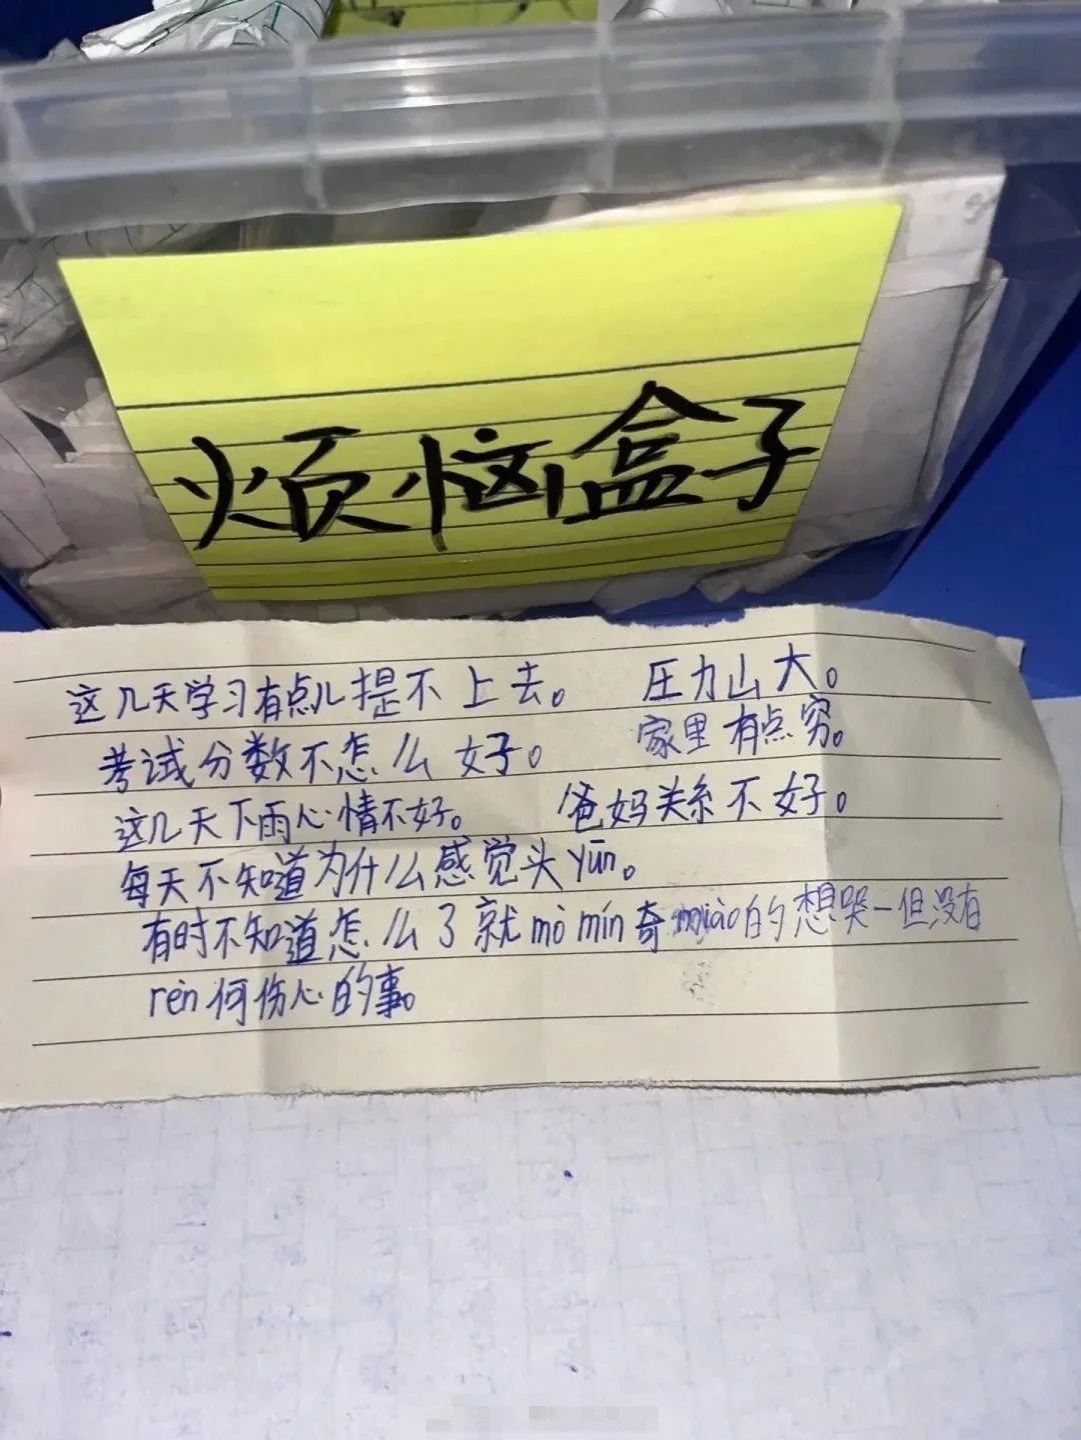 烦恼盒子
这几天学习有点儿提不上去。 压力山大。
考试分数不怎么好。 家里有点穷。
这几天下雨心情不好。 爸妈关系不好。
每天不知道为什么感觉头yūn。
有时不知道怎么了就mò mín奇miào的想哭一但没有
rèn何伤心的事。